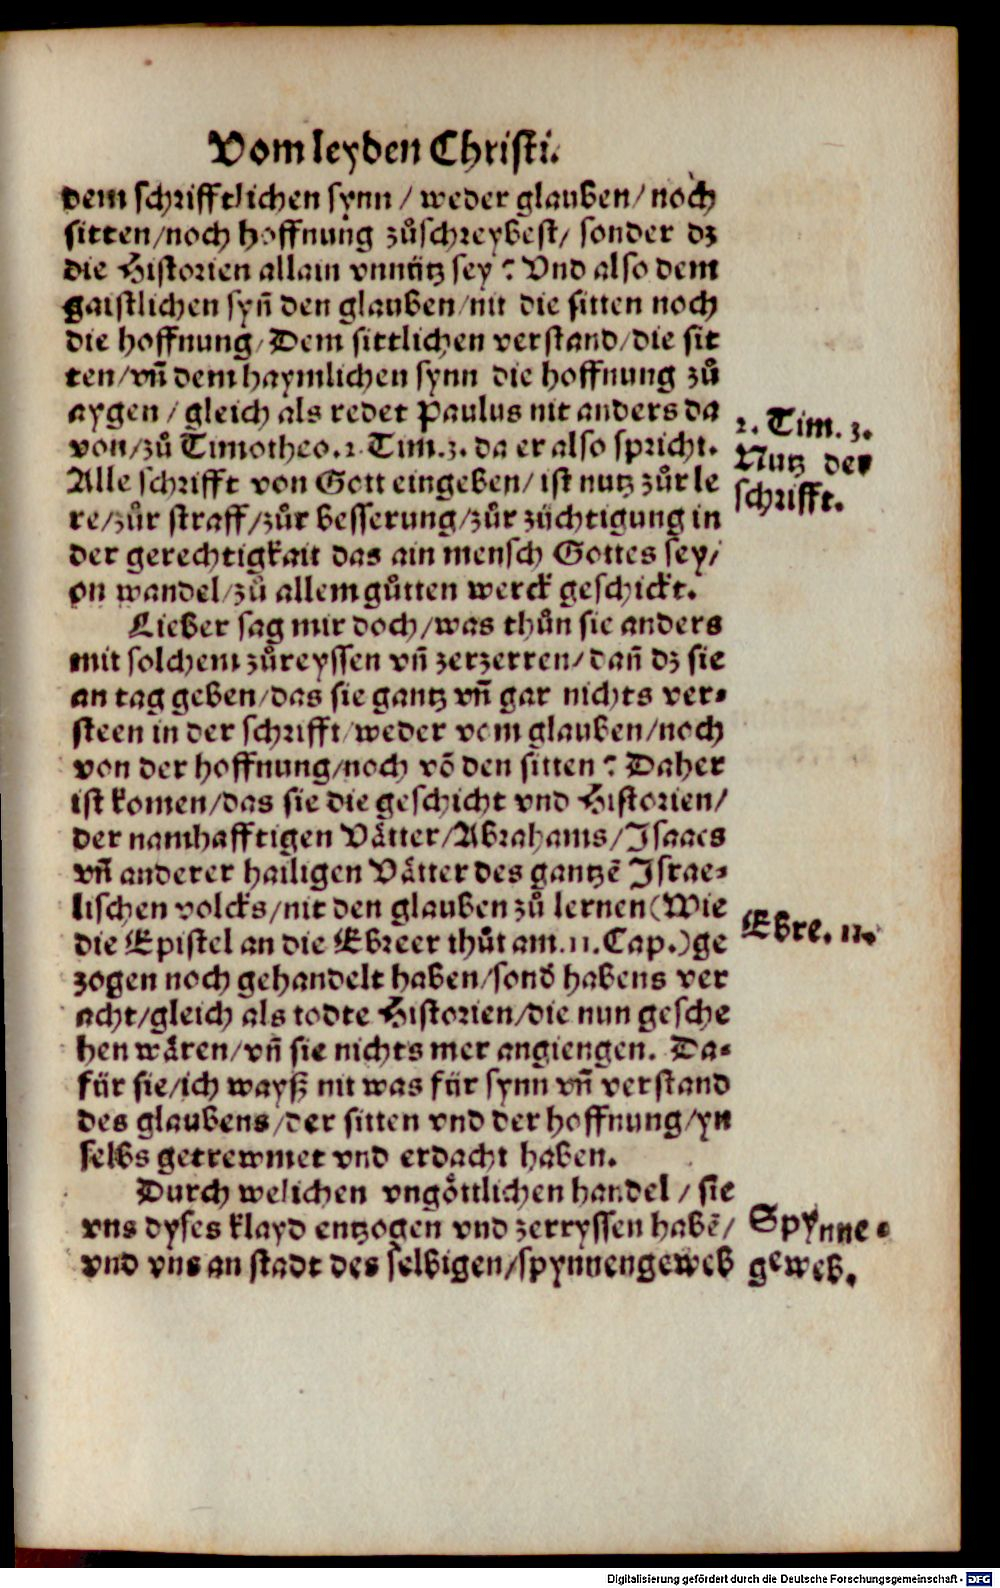 Vom leyden Christi.
dem schrifftlichen synn / weder glauben / noch
sitten / noch hoffnung zůschreybest / sonder dz
die Historien allain vnnütz sey? Vnd also dem
gaistlichen syn̄ den glauben / nit die sitten noch
die hoffnung / Dem sittlichen verstand / die sit
ten / vn̄ dem haymlichen synn die hoffnung zů
aygen / gleich als redet Paulus nit anders da
von / zů Timotheo. 2. Tim. 3. da er also spricht.
2. Tim. 3.
Alle schrifft von Gott eingeben / ist nutz zůr le
Nutz der
re / zůr straff / zůr besserung / zůr züchtigung in
schrifft.
der gerechtigkait das ain mensch Gottes sey /
on wandel / zů allem gůtten werck geschickt.
Lieber sag mir doch / was thůn sie anders
mit solchem zůreyssen vn̄ zerzerren / dan̄ dz sie
an tag geben / das sie gantz vn̄ gar nichts ver⸗
steen in der schrifft / weder vom glauben / noch
von der hoffnung / noch võ den sitten? Daher
ist komen / das sie die geschicht vnd Historien /
der namhafftigen Vätter / Abrahams / Isaacs
vn̄ anderer hailigen Vätter des gantzẽ Israe⸗
lischen volcks / nit den glauben zů lernen (Wie
die Epistel an die Ebreer thůt am. 11. Cap.) ge
Ebre. 11.
zogen noch gehandelt haben / sond̕ habens ver
acht / gleich als todte Historien / die nun gesche
hen wären / vn̄ sie nichts mer angiengen. Da⸗
für sie / ich wayß nit was für synn vn̄ verstand
des glaubens / der sitten vnd der hoffnung / yn
selbs getrewmet vnd erdacht haben.
Durch welichen vngöttlichen handel / sie
vns dyses klayd entzogen vnd zerryssen habẽ /
Spynne⸗
vnd vns an stadt des selbigen / spynnengeweb
geweb.
Digitalisierung gefördert durch die Deutsche Forschungsgemeinschaft - DFG